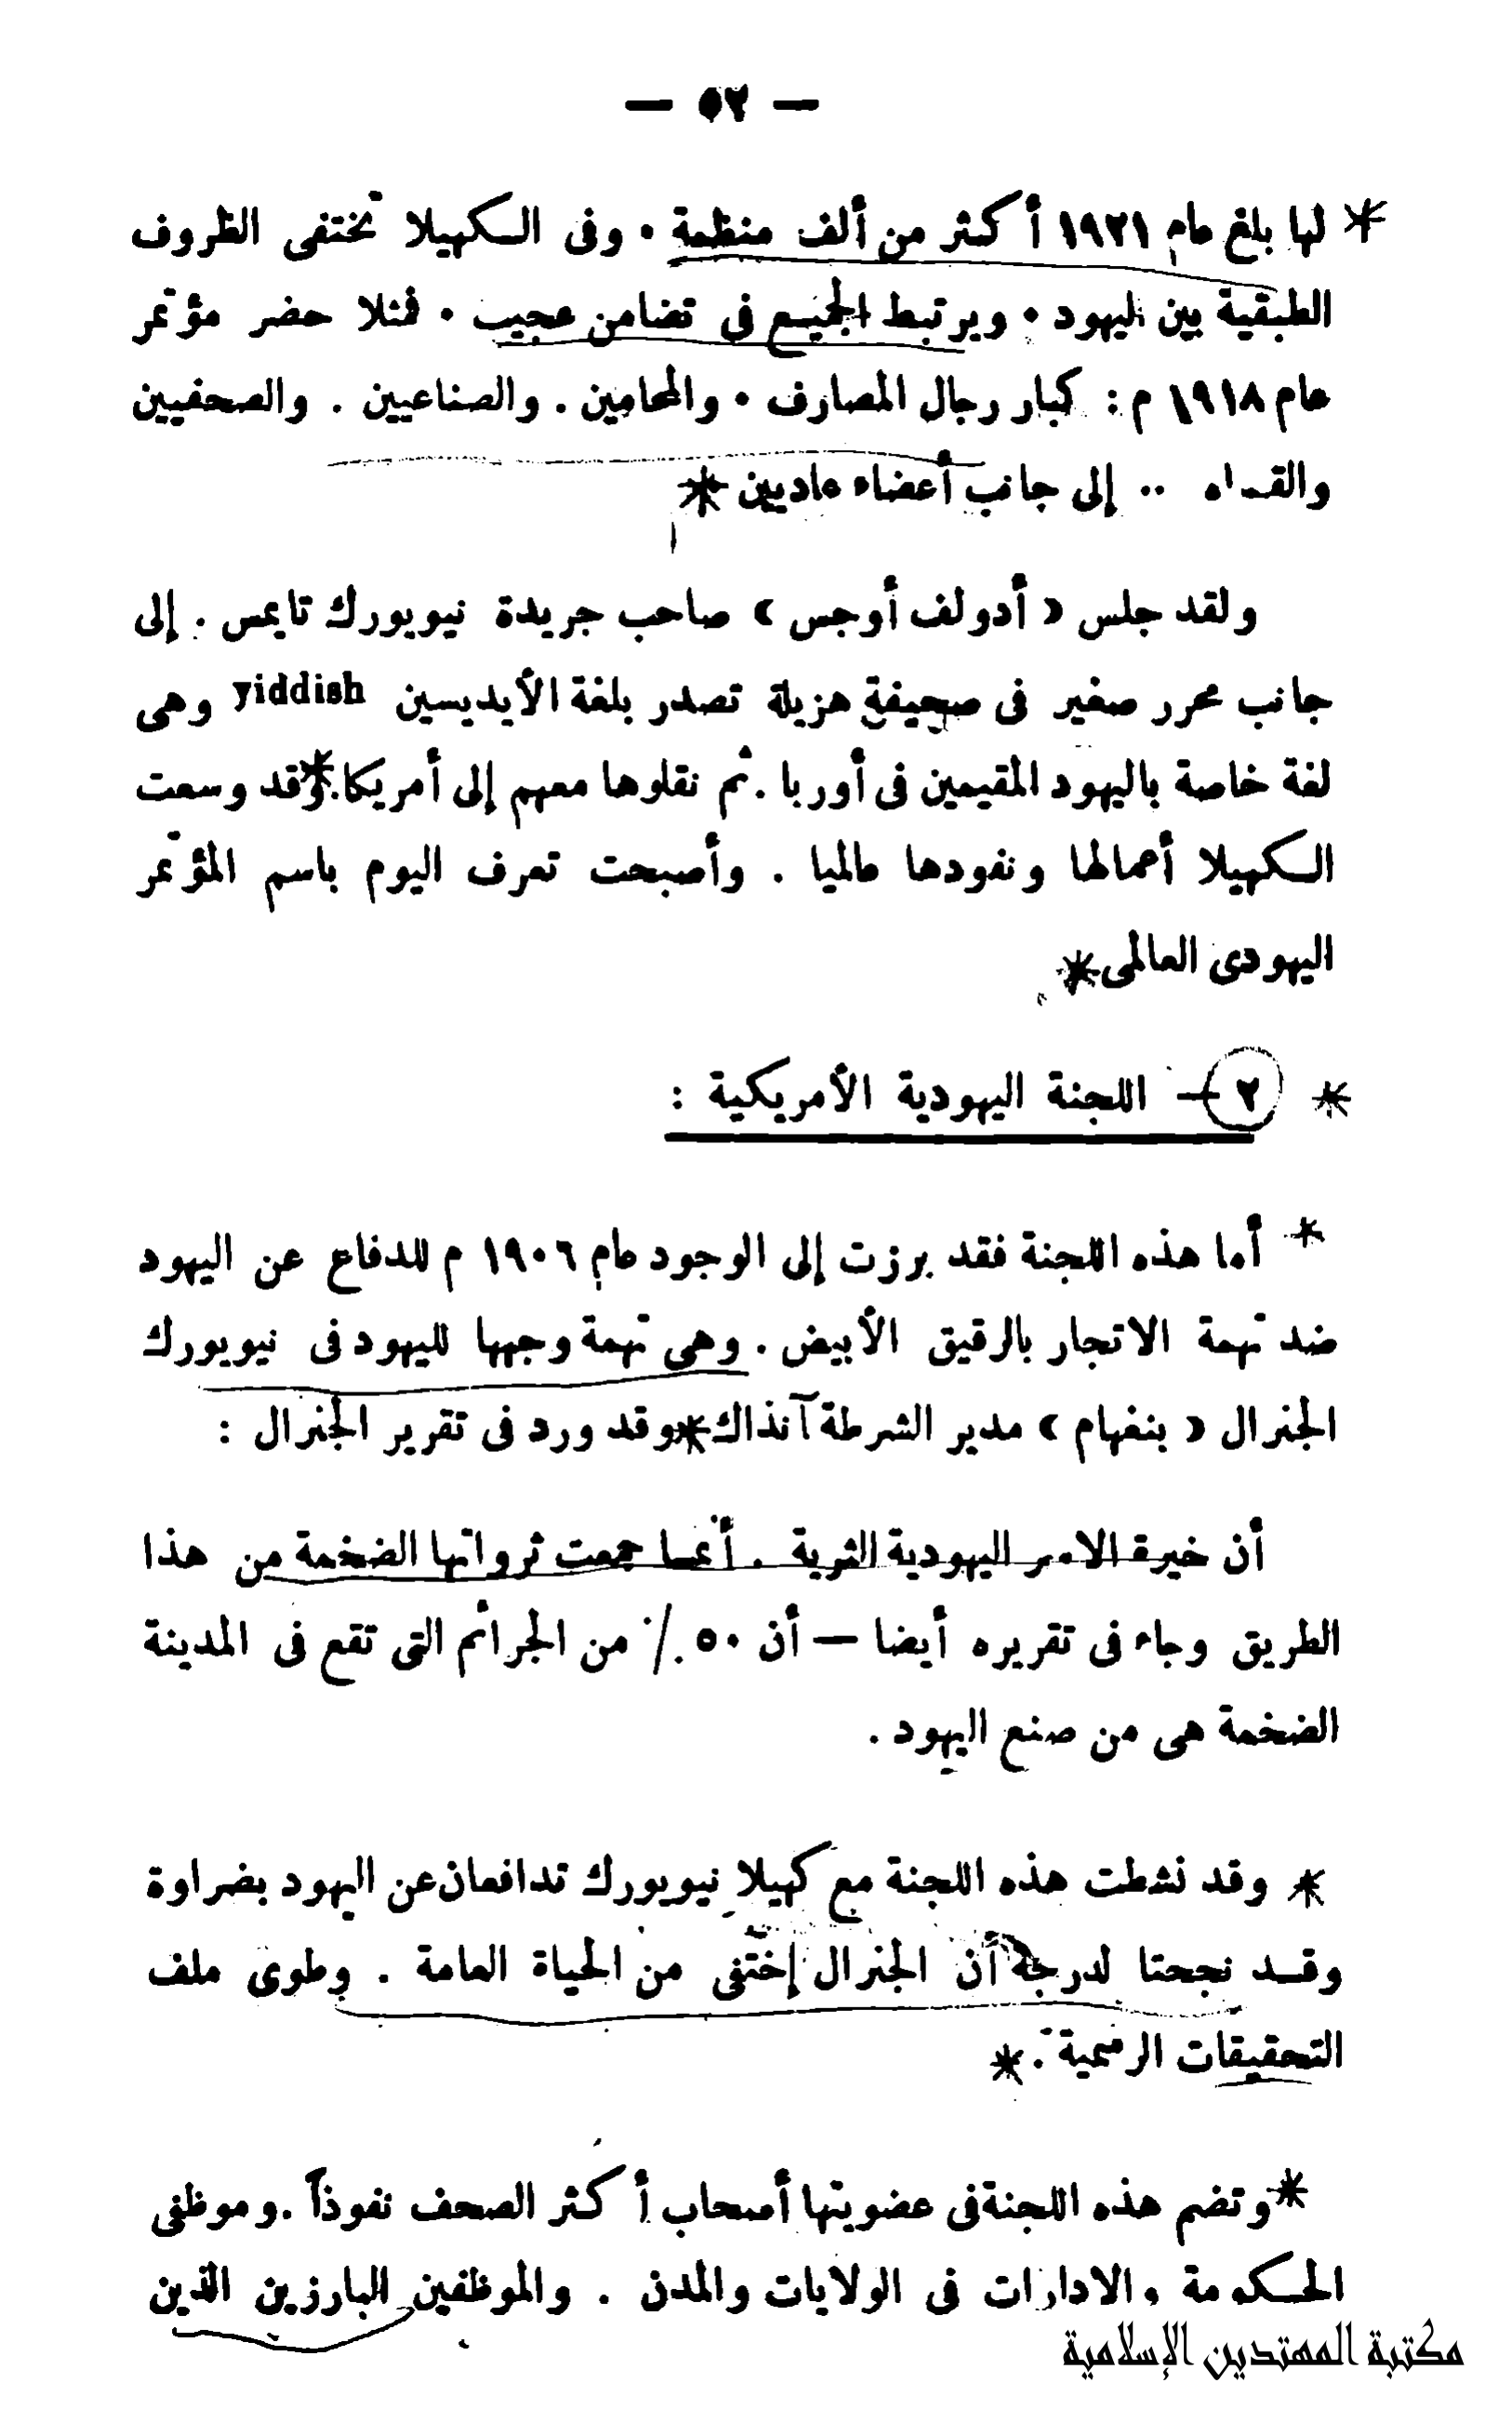 — ٥٢ —
* لها بلغ عام ١٩٢١ أكثر من ألف منظمة . وفى الكهيلا تختفى الظروف
الطبقية بين اليهود . ويرتبط الجميع فى تضامن عجيب . فمثلا حضر مؤتمر
عام ١٩١٨ م : كبار رجال المصارف . والمحامين . والصناعيين . والصحفيين
.. إلى جانب أعضاء عاديين *
ولقد جلس « أدولف أوجس » صاحب جريدة نيويورك تايمس . إلى
جانب محرر صغير فى صحيفة هزيلة تصدر بلغة الأيديسين yiddish وهى
لغة خاصة باليهود المقيمين فى أوربا . ثم نقلوها معهم إلى أمريكا .* وقد وسعت
الكهيلا أعمالها ونفودها عالميا . وأصبحت تعرف اليوم باسم المؤتمر
اليهودى العالمى *
* ٢ — اللجنة اليهودية الأمريكية :
* أما هذه اللجنة فقد برزت إلى الوجود عام ١٩٠٦ م للدفاع عن اليهود
ضد تهمة الاتجار بالرقيق الأبيض . وهى تهمة وجهها لليهود فى نيويورك
الجنرال « بنغهام » مدير الشرطة آنذاك * وقد ورد فى تقرير الجنرال :
أن خيرة الاسر اليهودية الثرية . أنما جمعت ثرواتها الضخمة من هذا
الطريق وجاء فى تقريره أيضا — أن ٥٠ ٪ من الجرائم التى تقع فى المدينة
الضخمة هى من صنع اليهود .
* وقد نشطت هذه اللجنة مع كهيلا نيويورك تدافعان عن اليهود بضراوة
وقد نجحتا لدرجة أن الجنرال إختفى من الحياة العامة . وطوى ملف
التحقيقات الرسمية . *
* وتضم هذه اللجنة فى عضويتها أصحاب أكثر الصحف نفوذاً . وموظفى
الحكومة والادارات فى الولايات والمدن . والموظفين البارزين الذين
مكتبة المهتدين الإسلامية